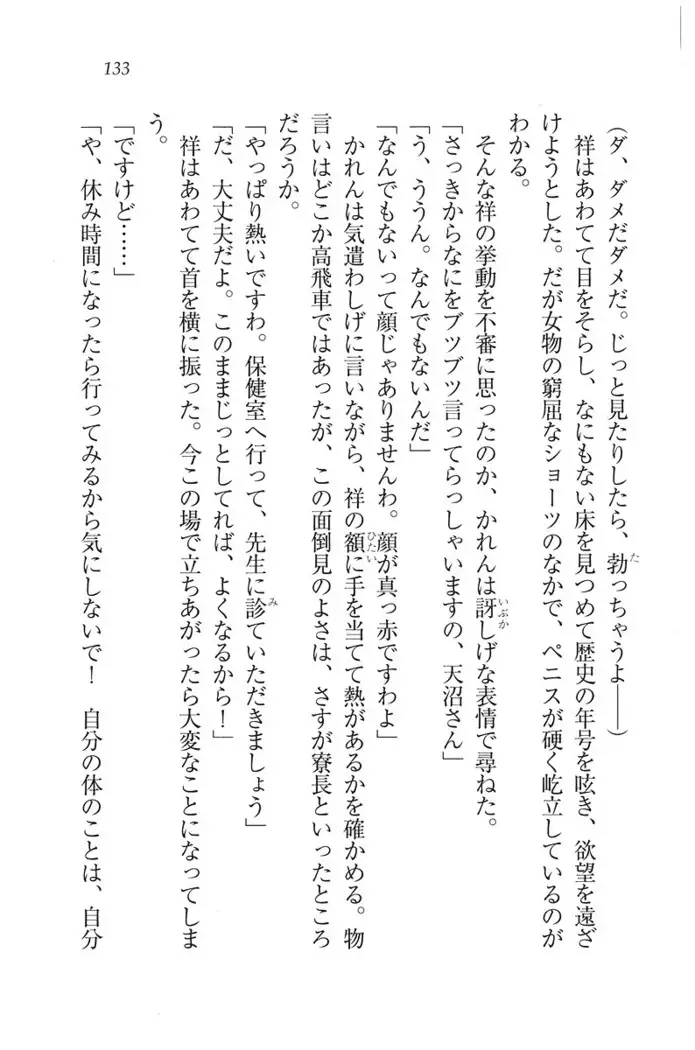 133
(ダ、ダメだダメだ。じっと見たりしたら、勃っちゃうよ――)
祥はあわてて目をそらし、なにもない床を見つめて歴史の年号を呟き、欲望を遠ざ
けようとした。だが女物の窮屈なショーツのなかで、ペニスが硬く屹立しているのが
わかる。
そんな祥の挙動を不審に思ったのか、かれんは訝しげな表情で尋ねた。
「さっきからなにをブツブツ言ってらっしゃいますの、天沼さん」
「う、ううん。なんでもないんだ」
「なんでもないって顔じゃありませんわ。顔が真っ赤ですわよ」
かれんは気遣わしげに言いながら、祥の額に手を当てて熱があるかを確かめる。物
言いはどこか高飛車ではあったが、この面倒見のよさは、さすが寮長といったところ
だろうか。
「やっぱり熱いですわ。保健室へ行って、先生に診ていただきましょう」
「だ、大丈夫だよ。このままじっとしてれば、よくなるから!」
祥はあわてて首を横に振った。今この場で立ちあがったら大変なことになってしま
う。
「ですけど……」
「や、休み時間になったら行ってみるから気にしないで! 自分の体のことは、自分